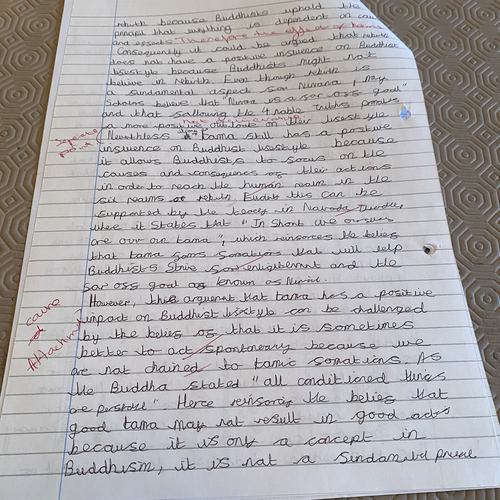 rebirth because Buddhists uphold the
principal that everything is dependent on cause
and effects Therefore the effects of kamma
Consequently it could be argued that rebirth
does not have a positive influence on Buddhist
lifestyle because Buddhists might not
believe in rebirth. Even though rebirth is
a fundamental aspect for Nirvana, may
Scholars believe that "Nirvana is a far off goal"
and that following the 4 noble truths promotes
a more positive outlook on their lifestyle
Separate point
Nevertheless kamma still has a positive
influence on Buddhist lifestyle because
it allows Buddhists to focus on the
causes and consequences of their actions
in order to reach the human realm in the
six realms of rebirth. this can be
supported by the in
where it States that "In Short we ourselves
are our own kamma", which reinforces the belief
that kamma forms formations that will help
Buddhists Strive for enlightenment and the
far off goal as known as
cause of Attachment
However, this argument that kamma has a positive
impact on Buddhist lifestyle can be challenged
by the belief of that it is sometimes
better to act spontaneously because we
are not chained to kamic formations. As
the Buddha stated "all conditioned things
are ". Hence reinforcing the belief that
good kamma may not result in good acts
because it is only a concept in
Buddhism, it is not a